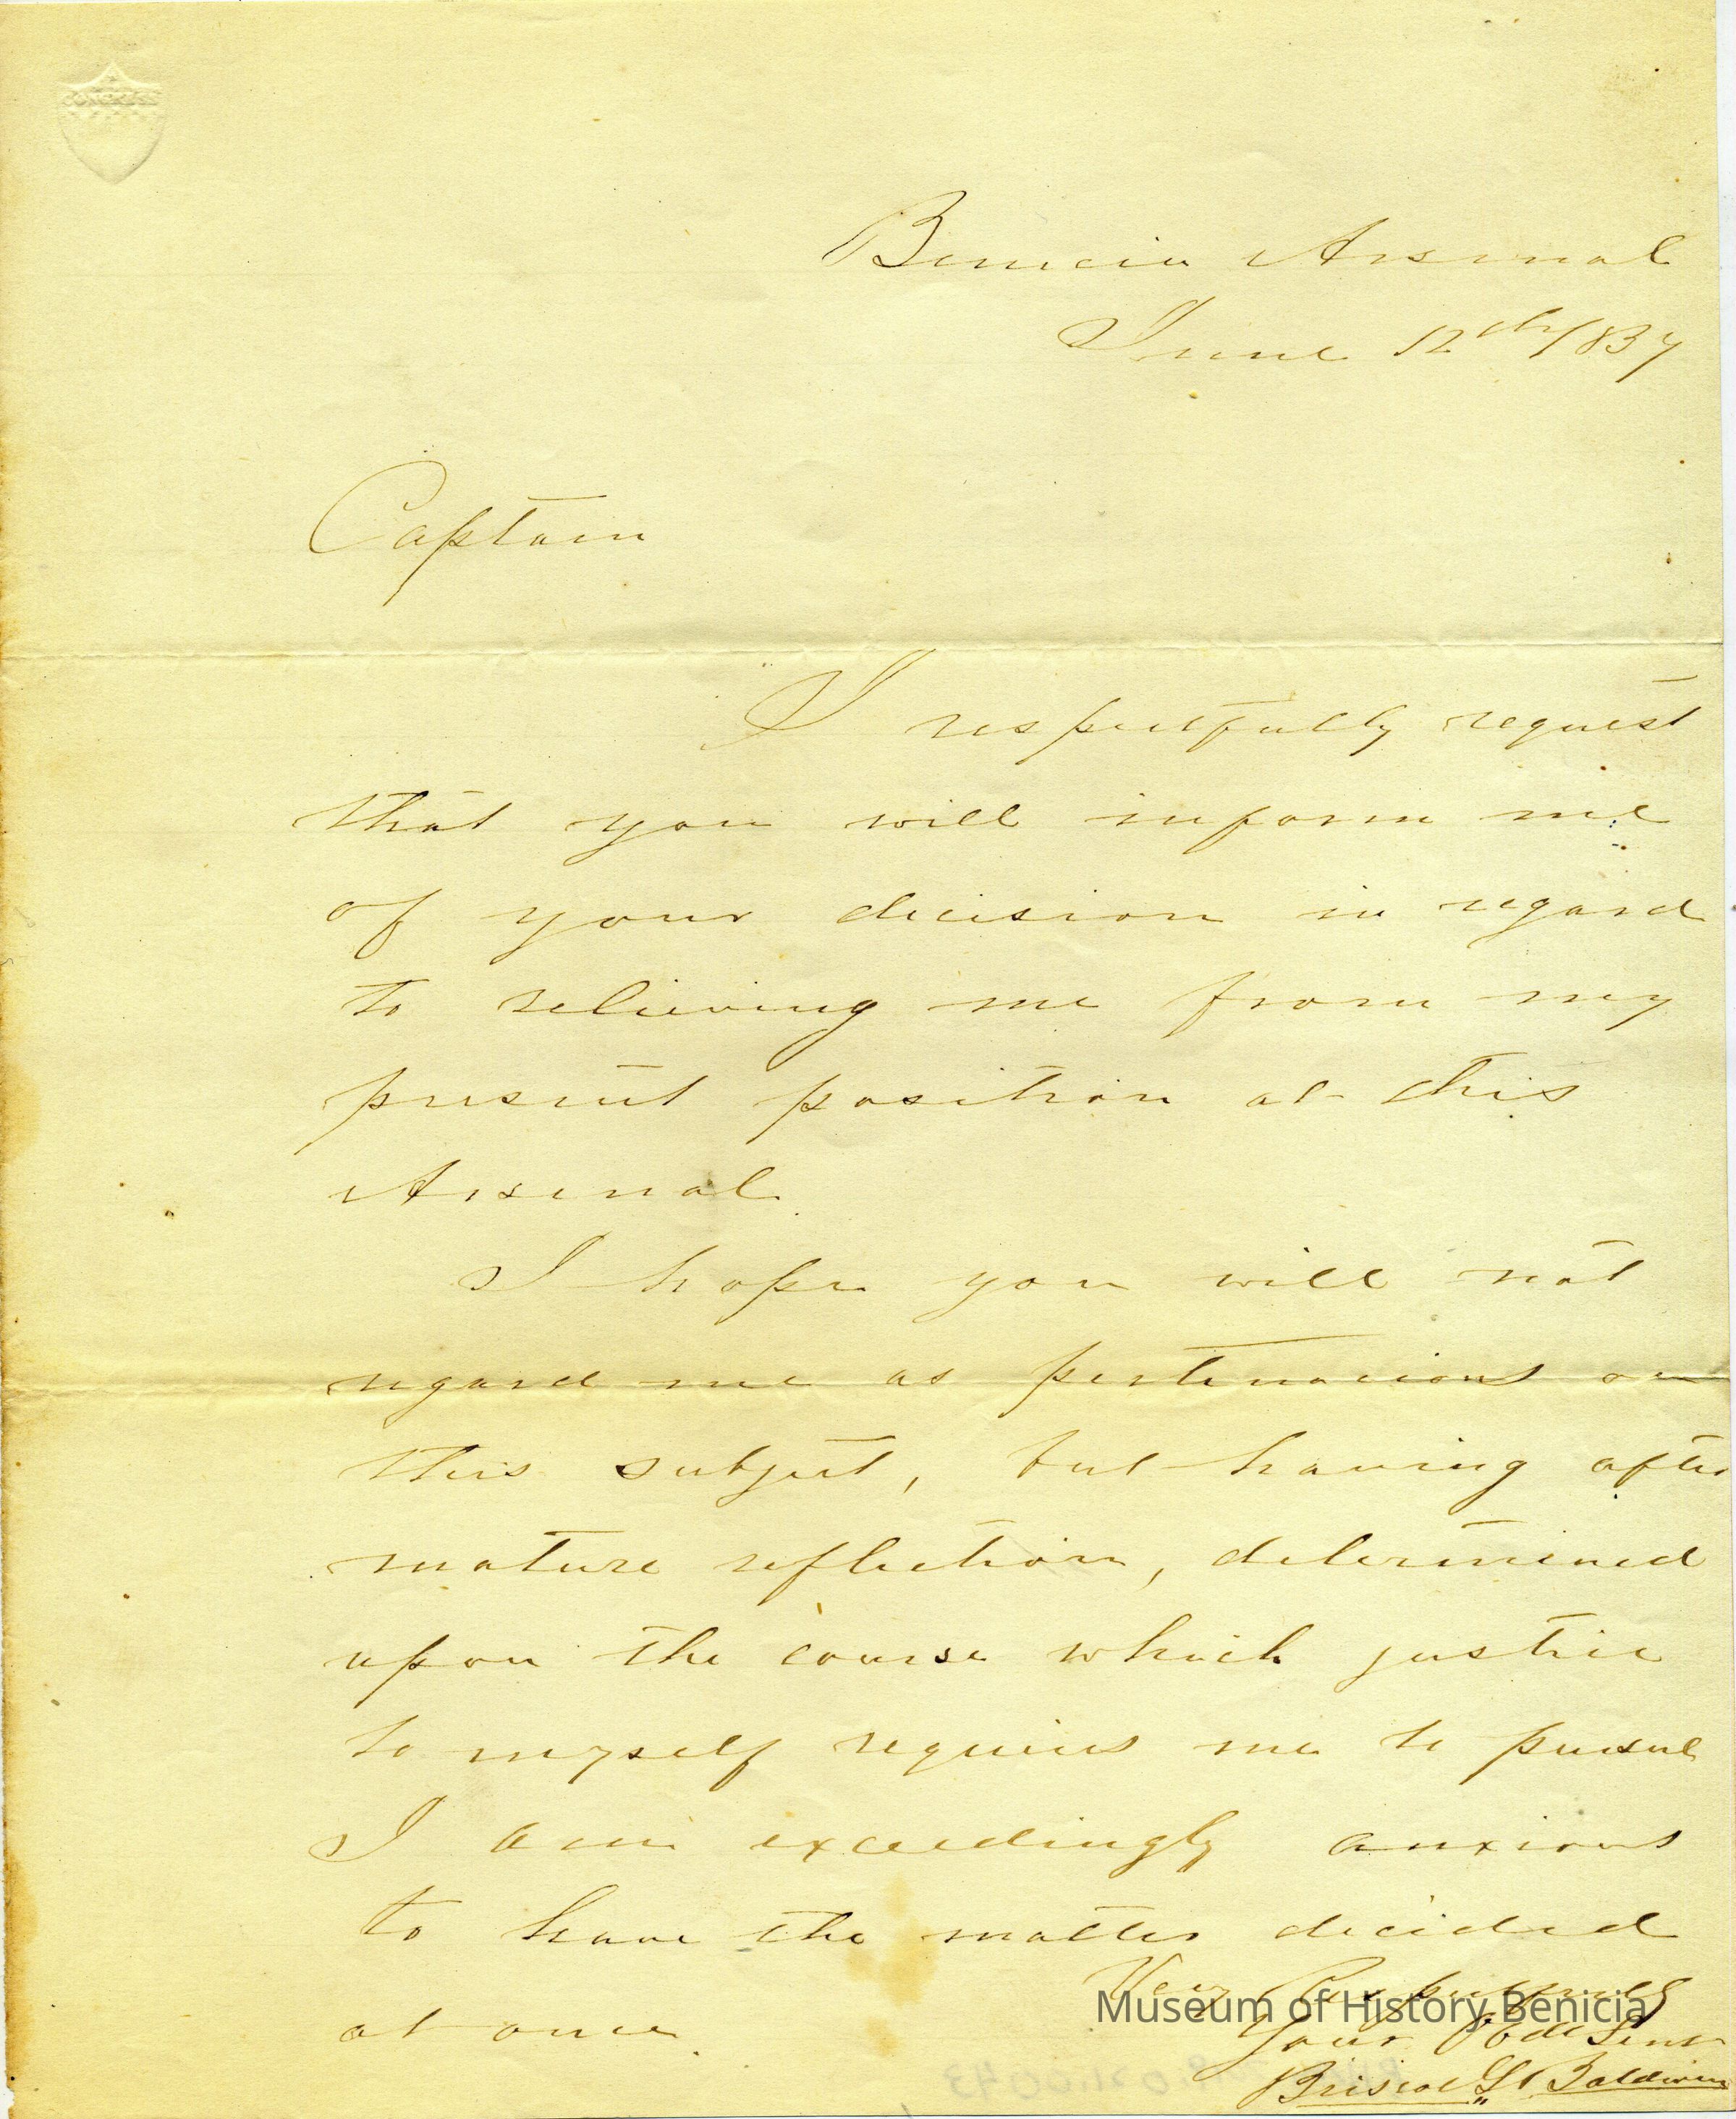 CONGRESS
Benicia Arsenal
June 12th/857
Captain
I respectfully request
that you will inform me
of your decision in regard
to relieving me from my
present position at this
Arsenal.
I hope you will not
regard me as pertenacious on
this subject, but having after
mature reflection, determined
upon the course which justice
to myself requires me to pursue
I am exceedingly anxious
to have the matter decided
at once.
Very Respectfully
Your Obdt Servt
Briscoe G. Baldwin
Museum of History Benicia